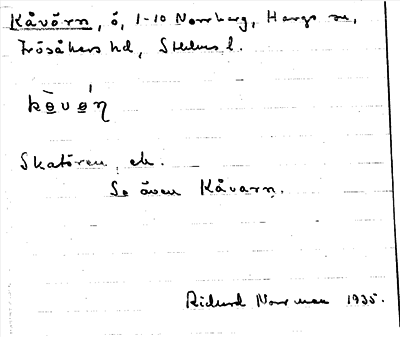 Kåvörn, ö, 1-10 Norrberg, Hargs sn,
Frösåkers hd, Sthlms l.
kòvǝ́n
Skatören, ek.
Se även Kåvarn.
Rickard Norrman 1935.